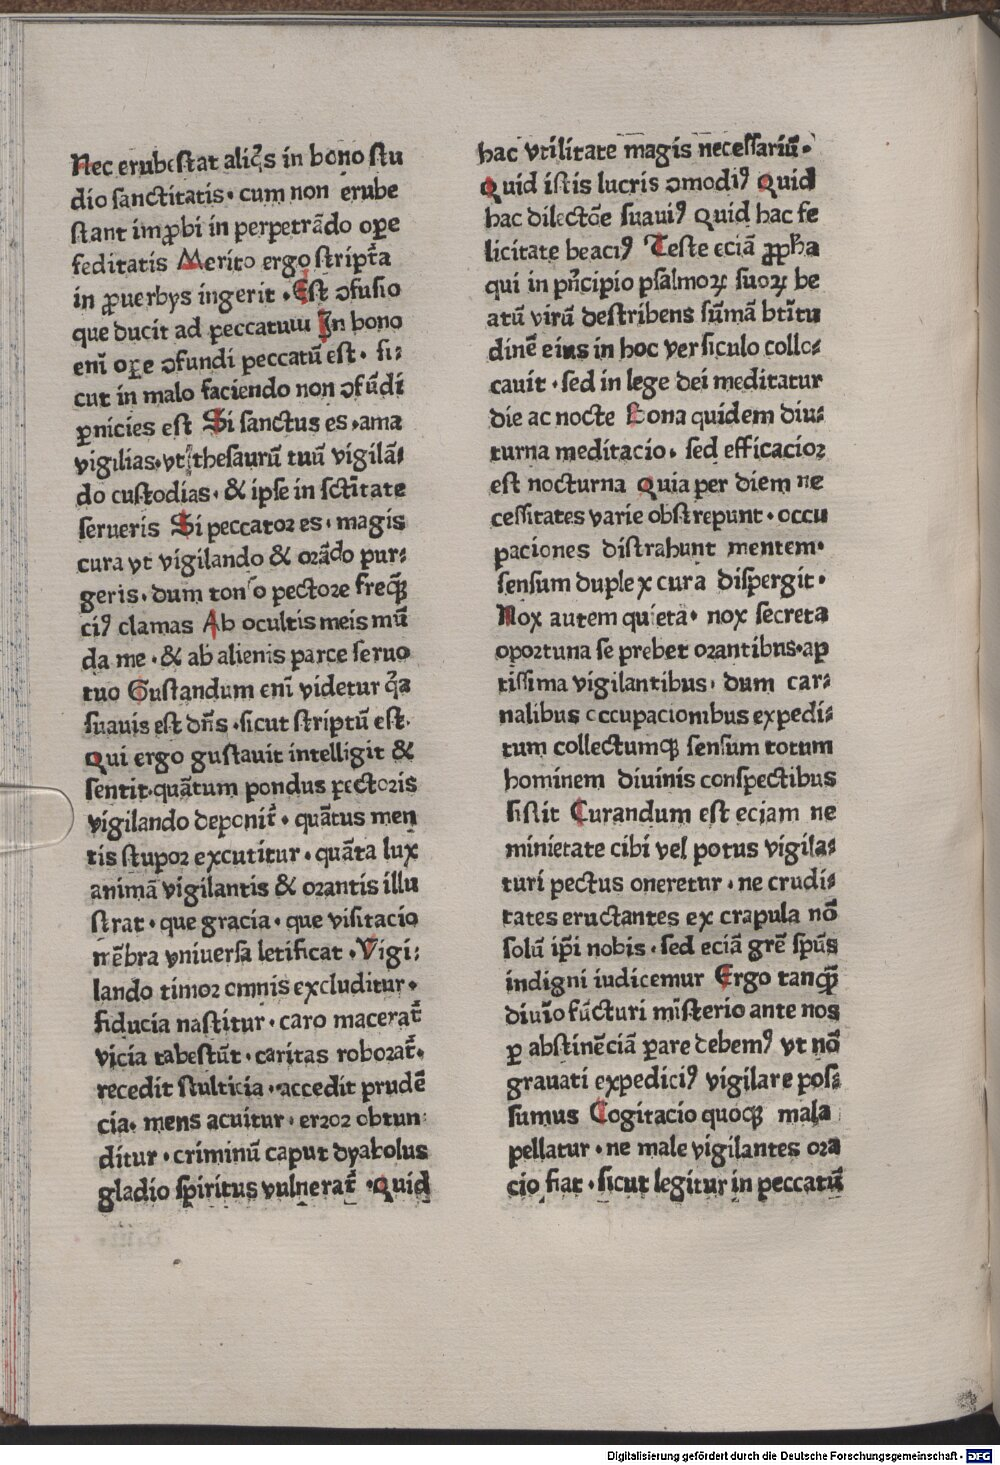 Nec erubescat aliq̃s in bono stu
dio sanctitatis· cum non erube
scant imꝓbi in perpetrãdo oꝑe
feditatis Merito ergo scriptᷓa
in ꝓuerbys ingerit ·Est ꝯfusio
que ducit ad peccatum In bono
enĩ oꝑe ꝯfundi peccatũ est· si⸗
cut in malo faciendo non ꝯfũdi
ꝑnicies est Si sanctus es·ama
vigilias·vt thesaurũ tuũ vigilã⸗
do custodias· & ipse in sctĩtate
serueris Si peccatoꝛ es· magis
cura vt vigilando & oꝛãdo pur⸗
geris· dum tonso pectoꝛe freqꝫ̃
ciꝰ clamas Ab ocultis meis mũ
da me·& ab alienis parce seruo
tuo Gustandum enĩ videtur q̃a
suauis est dñs·sicut scriptũ est·
Qui ergo gustauit intelligit &
sentit·quãtum pondus pectoꝛis
vigilando deponit᷑· quãtus men
tis stupoꝛ excutitur·quãta lux
animã vigilantis & oꝛantis illu
strat·que gracia·que visitacio
mẽbra vniuersa letificat·Vigi⸗
lando timoꝛ omnis excluditur·
fiducia nascitur·caro macerat᷑
vicia tabescũt·caritas roboꝛat᷑·
recedit stulticia·accedit prudẽ
cia· mens acuitur·erꝛoꝛ obtun
ditur·criminũ caput dyabolus
gladio spiritus vulnerat᷑ ·Quid
hac vtilitate magis necessariũ·
Quid istis lucris ꝯmodiꝰ Quid
hac dilectõe suauiꝰ Quid hac fe
licitate beaciꝰ Teste eciã ꝓpħa
qui in pñcipio psalmoꝝ suoꝝ be
atũ virũ describens sũmã btĩtu
dinẽ eius in hoc versiculo collo⸗
cauit·sed in lege dei meditatur
die ac nocte Bona quidem diu⸗
turna meditacio· sed efficacioꝛ
est nocturna Quia per diem ne
cessitates varie obstrepunt·occu
paciones distrahunt mentem·
sensum duplex cura dispergit·
Nox autem quieta· nox secreta
opoꝛtuna se prebet oꝛantibus·ap
tissima vigilantibus· dum car⸗
nalibus occupacionibus expedi⸗
tum collectumqꝫ sensum totum
hominem diuinis conspectibus
sistit Curandum est eciam ne
minietate cibi vel potus vigila⸗
turi pectus oneretur·ne crudi⸗
tates eructantes ex crapula nõ
solũ ip̃i nobis·sed eciã grẽ spũs
indigni iudicemur Ergo tanqꝫ̃
diuĩo fũcturi mĩsterio ante nos
ꝑ abstinẽciã ꝑare debemꝰ vt nõ
grauati expediciꝰ vigilare pos⸗
sumus Cogitacio quoqꝫ mala
pellatur·ne male vigilantes oꝛa
cio fiat·sicut legitur in peccatũ
Digitalisierung gefördert durch die Deutsche Forschungsgemeinschaft - DFG